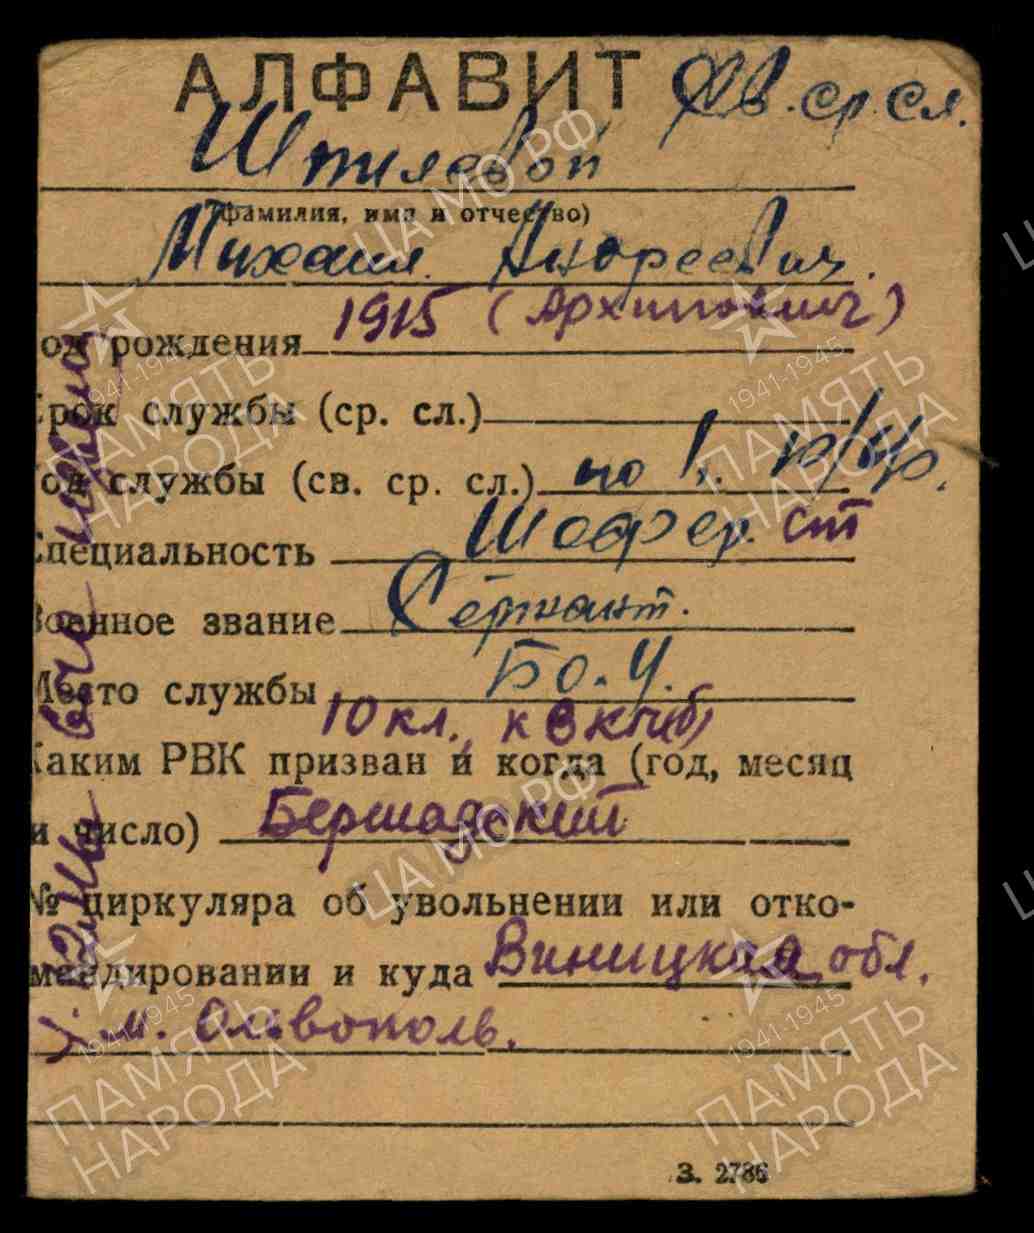 АЛФАВИТ св. ср. сл.
Штилевой
(фамилия, имя и отчество)
Михаил Андреевич.
1915 (Архипович)
од рождения
Срок службы (ср. сл.)
Год службы (св. ср. сл.) по
Специальность Шофер. ст
Военное звание Сержант.
Место службы Б.О.У.
10 кл., к ВКП(б)
Каким РВК призван и когда (год, месяц
и число) Бершадский
№ циркуляра об увольнении или отко-
мандировании и куда Виницкая обл.
м. Ольвополь.
З. 2786
ЦА МО РФ
1941-1945
ПАМЯТЬ
НАРОДА
1941-1945
ПАМЯТЬ
НАРОДА
ЦА МО РФ
1941-1945
ПАМЯТЬ
НАРОДА
1941-1945
ПАМЯТЬ
НАРОДА